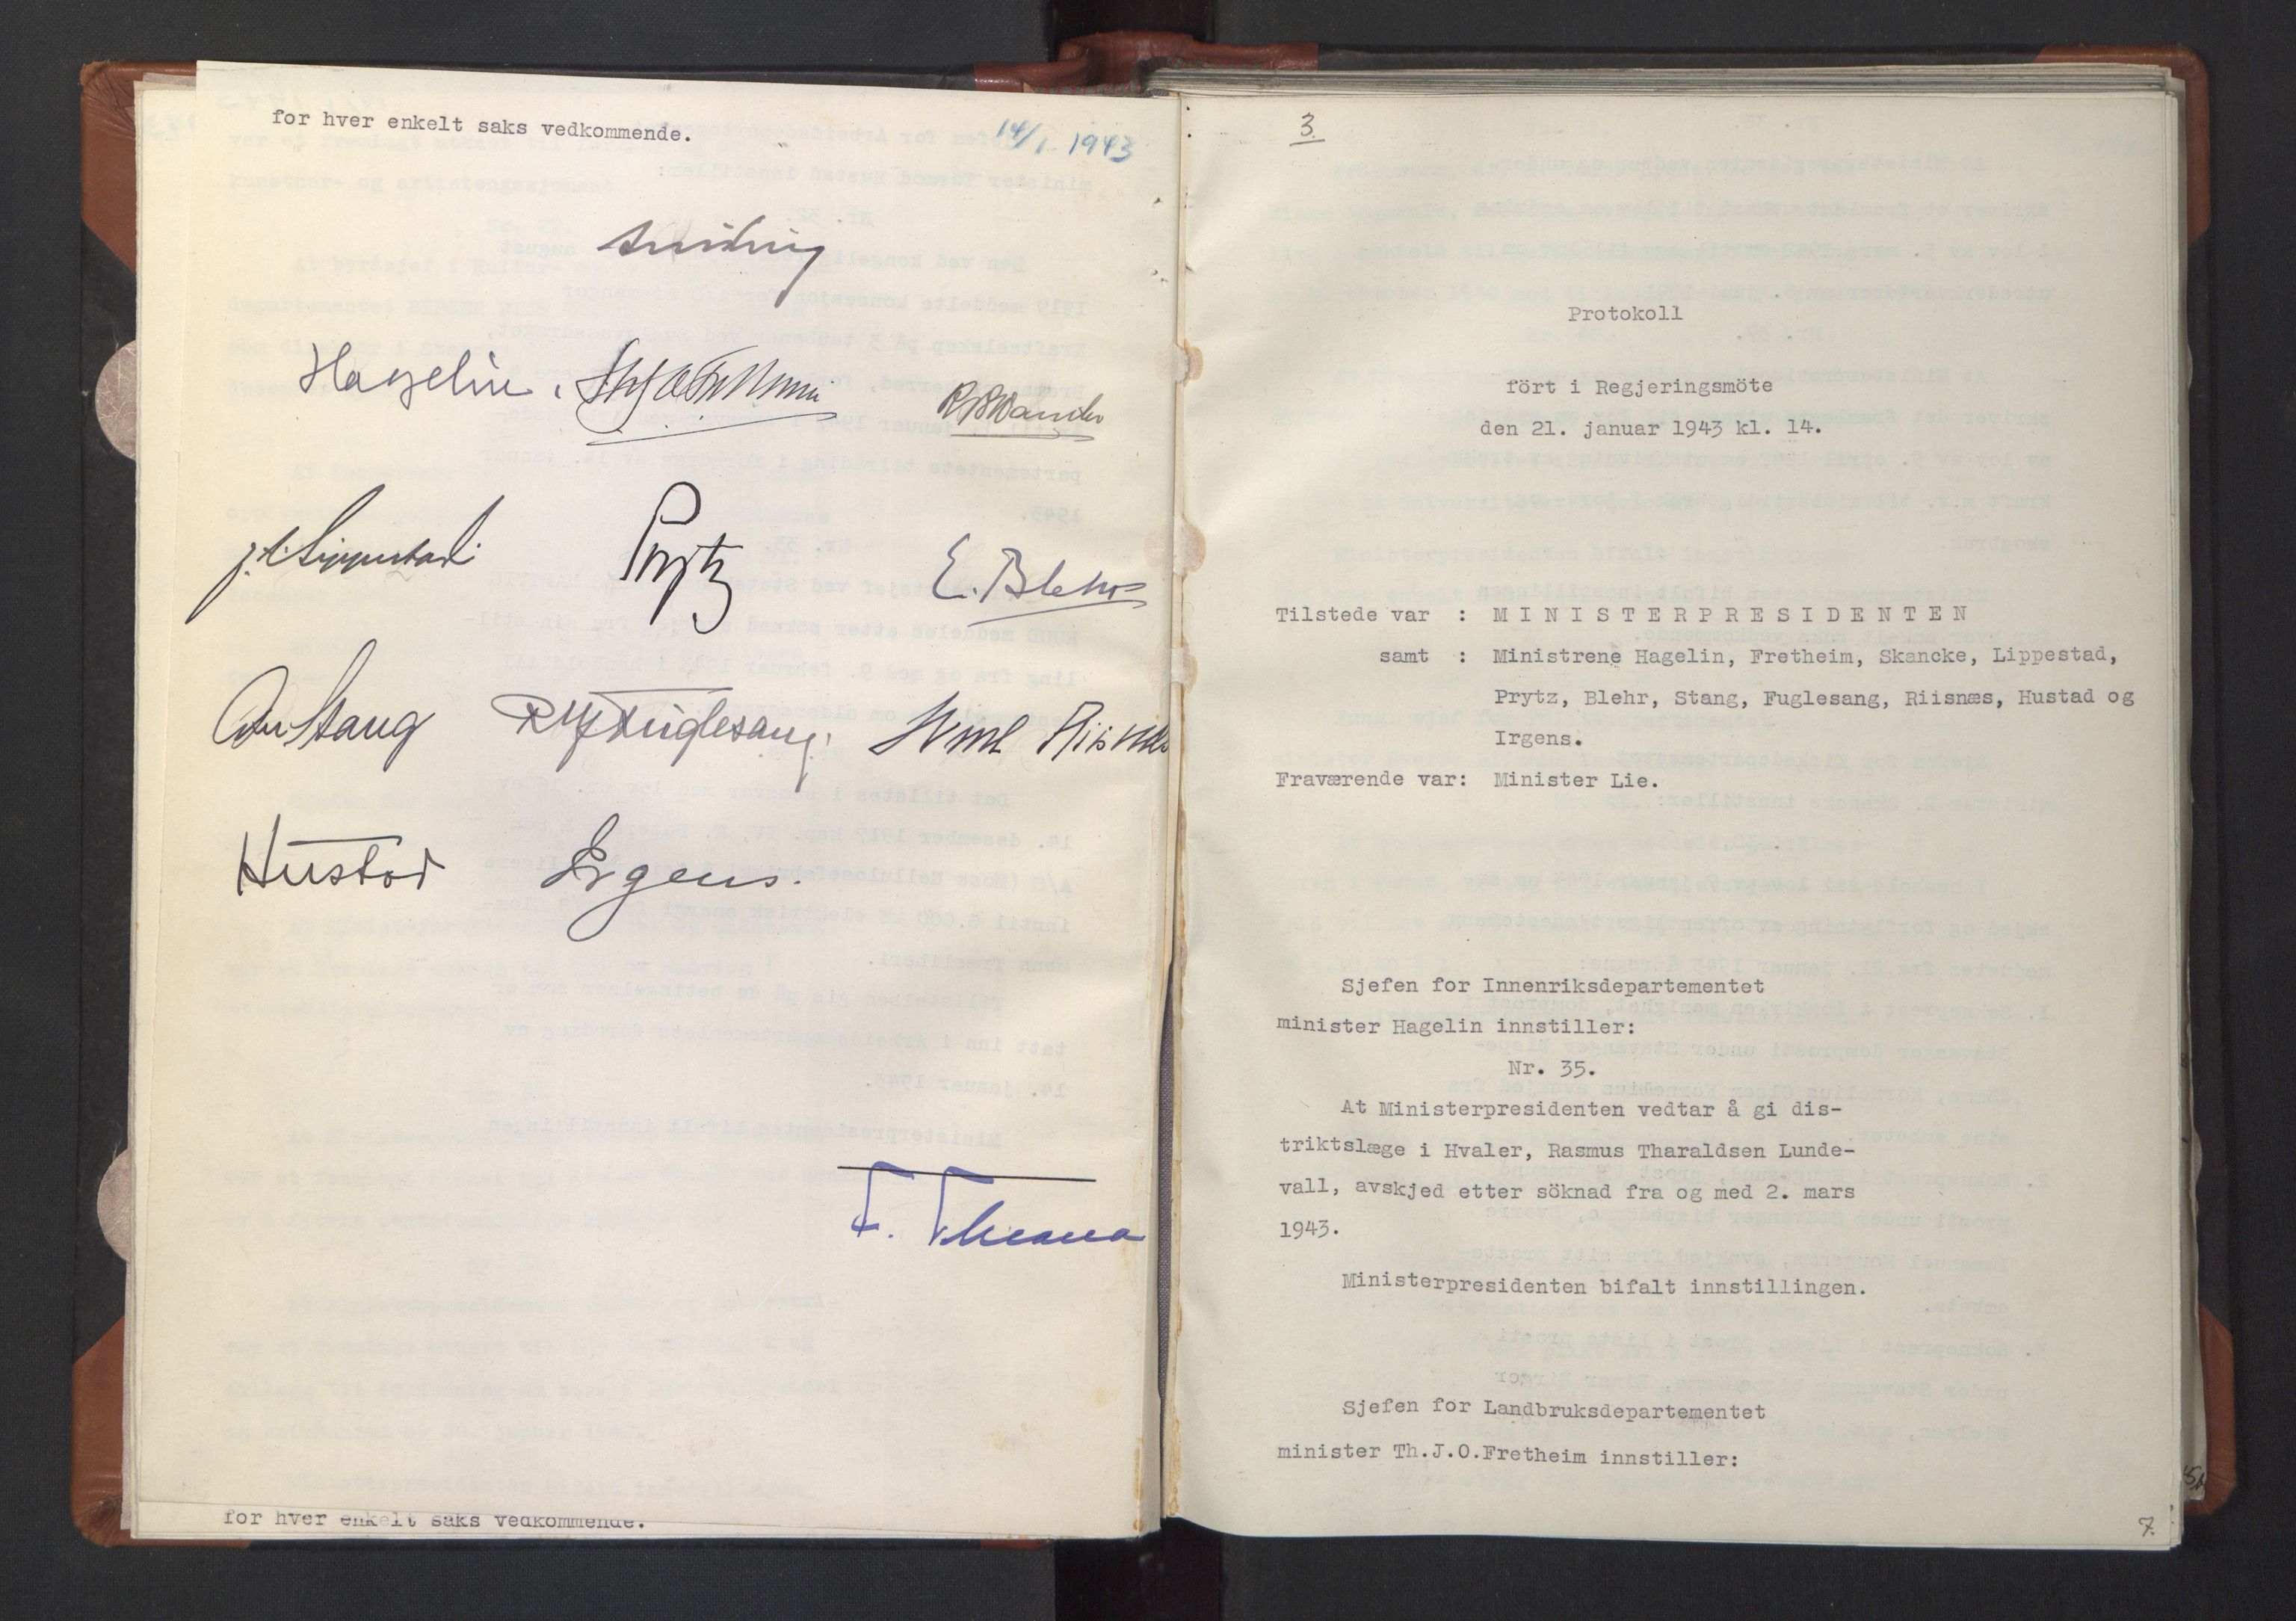 for hver enkelt saks vedkommende.
14/1 1943
Hagelin.
Prytz
E. Blehr
Stang
R J Fuglesang.
Riisnæs
Hustad
Irgens.
for hver enkelt saks vedkommende.
3.
Protokoll
fört i Regjeringsmöte
den 21. januar 1943 kl. 14.
Tilstede var : MINISTERPRESIDENTEN
samt : Ministrene Hagelin, Fretheim, Skancke, Lippestad,
Prytz, Blehr, Stang, Fuglesang, Riisnæs, Hustad og
Irgens.
Fraværende var: Minister Lie.
Sjefen for Innenriksdepartementet
minister Hagelin innstiller:
Nr. 35.
At Ministerpresidenten vedtar å gi dis-
triktslæge i Hvaler, Rasmus Tharaldsen Lunde-
vall, avskjed etter söknad fra og med 2. mars
1943.
Ministerpresidenten bifalt innstillingen.
Sjefen for Landbruksdepartementet
minister Th.J.O.Fretheim innstiller:
7.